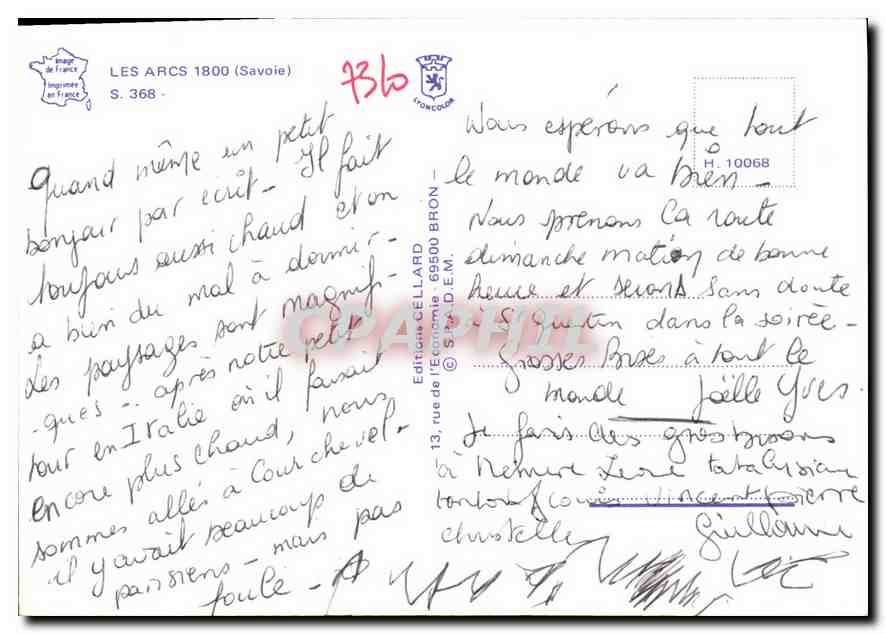 Image
de France
Imprimée
en France
LES ARCS 1800 (Savoie)
S. 368 -
7360
LYONCOLOR
H. 10068
Quand même un petit
bonjour par écrit - Il fait
toujours aussi chaud et on
a bien du mal à dormir -
Les paysages sont magnifi-
-ques - après notre petit
tour en Italie où il faisait
encore plus chaud, nous
sommes allés à Courchevel -
il y avait beaucoup de
parisiens - mais pas
foule -
Editions CELLARD
13, rue de l'Economie - 69500 BRON -
© S.P.A.D.E.M.
CPAPHIL
Nous espérons que tout
le monde va bien -
Nous prenons la route
dimanche matin de bonne
heure et serons sans doute
à St Quentin dans la soirée -
Grosses Bises à tout le
monde Joëlle Yves.
Je fais des gros bisous
à Mémère tata
tonton Vincent pierre
christelle Guillaume